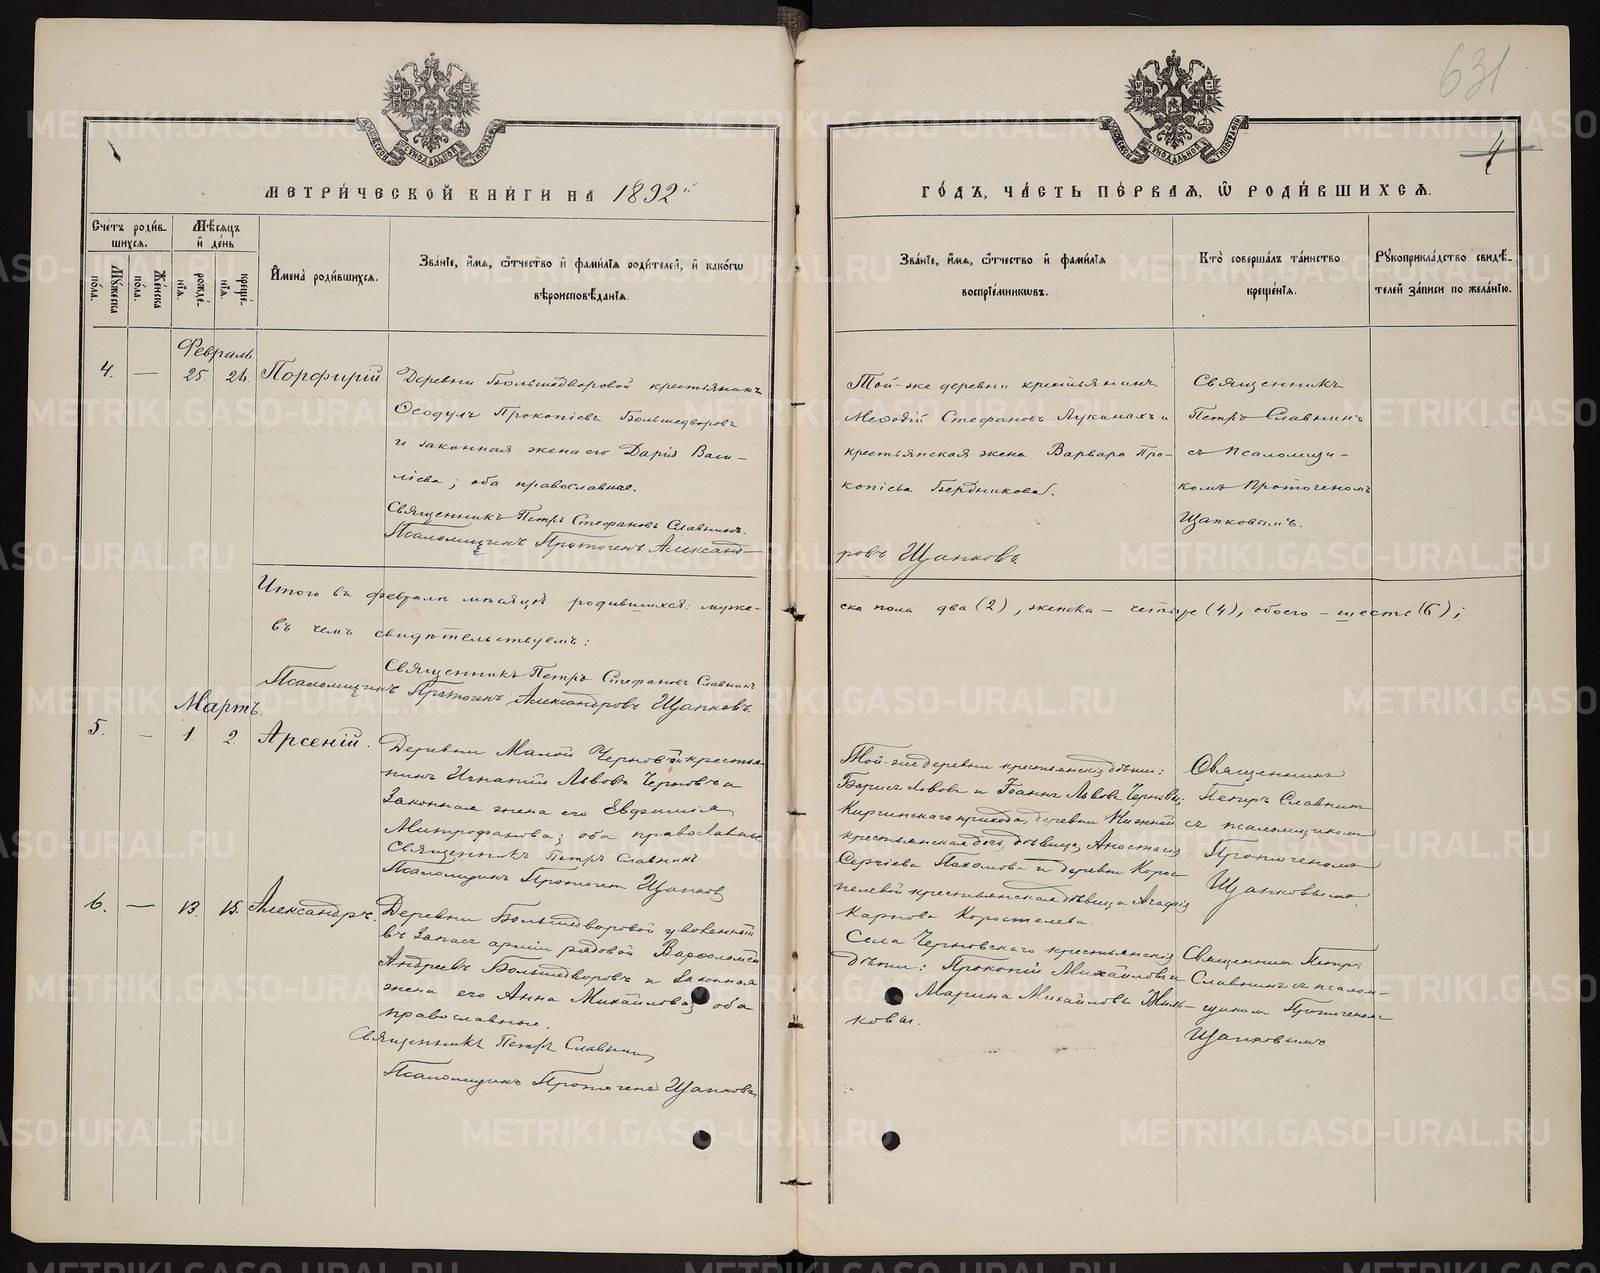 631
4
МОСКОВСКОЙ СѴНОДАЛЬНОЙ ТИПОГРАФІИ
МОСКОВСКОЙ СѴНОДАЛЬНОЙ ТИПОГРАФІИ
МЕТРИ́ЧЕСКОЙ КНИ́ГИ НА 1892й
ГО́ДЪ, ЧА́СТЬ ПЕ́РВАЯ, Ѡ РОДИ́ВШИХСЯ.
Сче́тъ роди́в-
шихся.
Му́жеска
по́ла.
Же́нска
по́ла.
Мѣ́сяцъ
и де́нь
рожде́-
нія.
креще́-
нія.
Имена̀ роди́вшихся.
Зва́ніе, и́мя, ѻ́тчество и фами́лія роди́телей, и како́гѡ
вѣроисповѣ́данія.
Зва́ніе, и́мя, ѻ́тчество и фами́лія
воспріе́мниковъ.
Кто̀ соверша́лъ та́инство
креще́нія.
Рꙋкоприкла́дство свидѣ́-
телей за́писи по жела́нію.
Февраль
4. — 25. 26. Порфирій
Деревни Большедворовой крестьянинъ
Ѳеодулъ Прокопіевъ Большедворовъ
и законная жена его Дарія Васи-
ліева; оба православные.
Священникъ Петръ Стефановъ Славнинъ.
Псаломщикъ Протогенъ Александ-
ровъ Щапковъ.
Той-же деревни крестьянинъ
Меѳодій Стефановъ Лукиныхъ и
крестьянская жена Варвара Про-
копіева Бердникова.
Священникъ
Петръ Славнинъ
съ псаломщи-
комъ Протогеномъ
Щапковымъ.
Итого въ февралѣ мѣсяцѣ родившихся: муже-
ска пола два (2), женска — четыре (4), обоего — шесть (6);
въ чемъ свидѣтельствуемъ:
Священникъ Петръ Стефановъ Славнинъ
Псаломщикъ Протогенъ Александровъ Щапковъ.
Мартъ.
5. — 1. 2. Арсеній.
Деревни Малой Черновой крестья-
нинъ Игнатій Львовъ Черновъ и
законная жена его Евфимія
Митрофанова; оба православные
Священникъ Петръ Славнинъ
Псаломщикъ Протогенъ Щапков
Той-же деревни крестьянскія дѣти:
Борисъ Львовъ и Іоаннъ Львовъ Черновы;
Киргинскаго прихода, деревни Нижней
крестьянская дочь, дѣвица Анастасія
Сергіева Пахомова и деревни Корос-
телевой крестьянская дѣвица Агафія
Карпова Коростелева
Священникъ
Петръ Славнинъ
съ псаломщикомъ
Протогеномъ
Щапковымъ.
6. — 13. 15. Александръ.
Деревни Большедворовой уволенный
въ запасъ арміи рядовой Варѳоломей
Андреевъ Большедворовъ и законная
жена его Анна Михайлова; оба
православные.
Священникъ Петръ Славнинъ
Псаломщикъ Протогенъ Щапковъ
Села Черновскаго крестьянскія
дѣти: Прокопій Михайловъ и
Марина Михайлова Жиль-
ковы.
Священникъ Петръ
Славнинъ съ псалом-
щикомъ Протогеномъ
Щапковымъ
METRIKI.GASO-URAL.RU